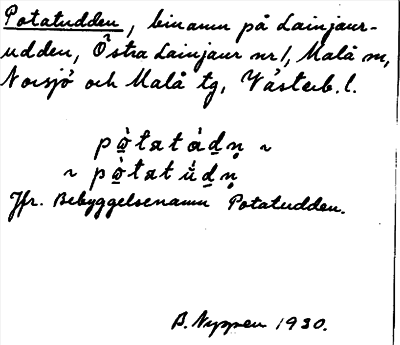 Potatudden, binamn på Lainjaur-
udden, Östra Lainjaur nr 1, Malå sn,
Norsjö och Malå tg, Västerb. l.
pò̲tatádn̥ ~
~ pò̲tatú̇dn̥
Jfr. Bebyggelsenamn Potatudden.
B. Nyppen 1930.